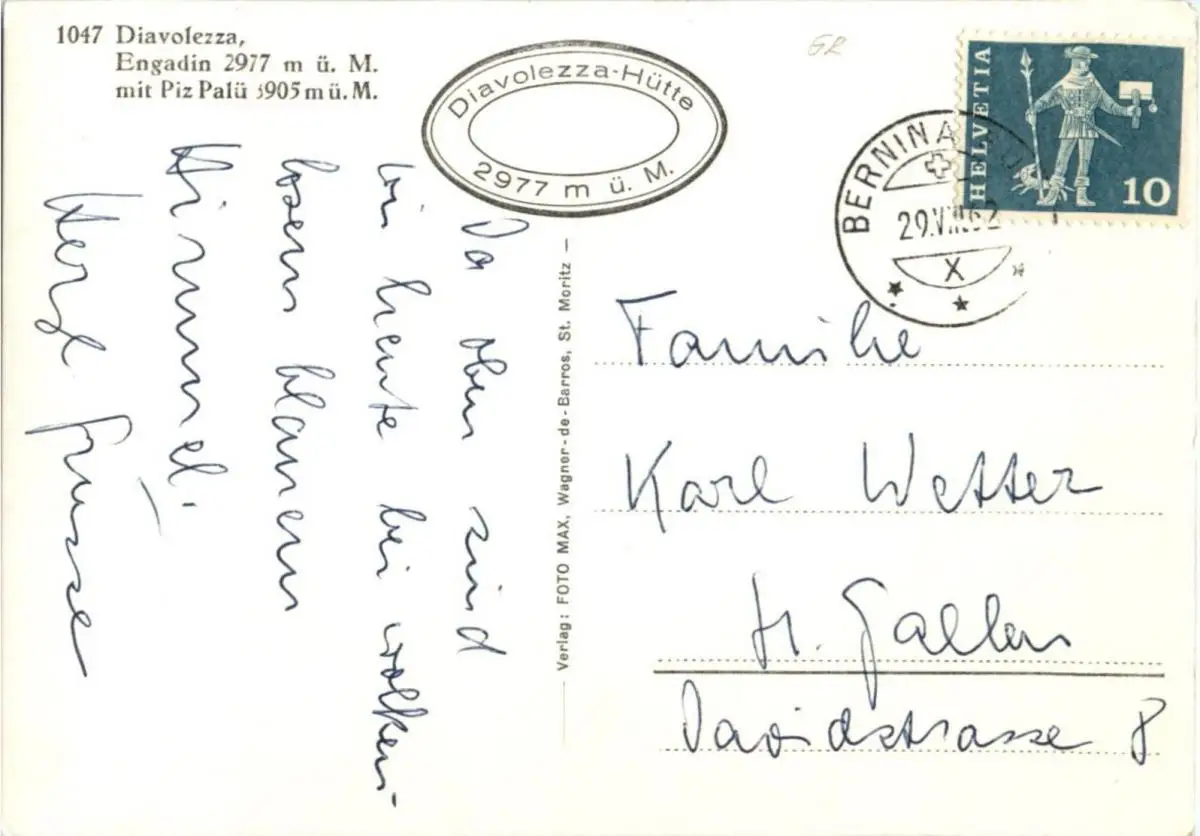 1047 Diavolezza,
Engadin 2977 m ü. M.
mit Piz Palü 3905 m ü. M.
Diavolezza-Hütte
2977 m ü. M.
GR
HELVETIA
10
BERNINA
29.VIII.62
X
Da oben sind
wir heute bei wolken-
losem blauem
Himmel.
Herzl. Grüsse
Verlag: FOTO MAX, Wagner-de-Barros, St. Moritz
Familie
Karl Wetter
St. Gallen
Davidstrasse 8